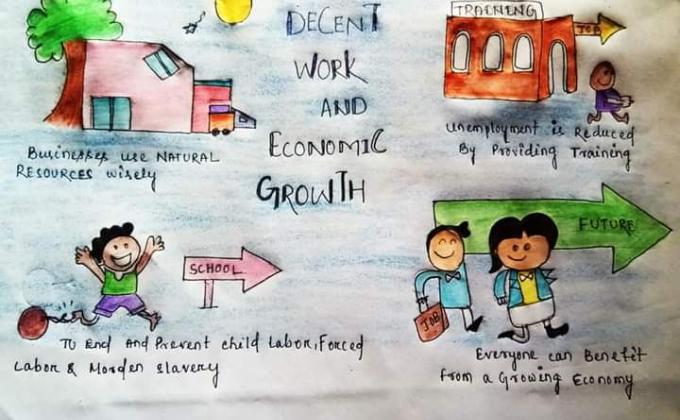 DECENT
WORK
AND
ECONOMIC
GROWTH
TRAINING
JOB
Businesses use NATURAL
RESOURCES wisely
Unemployment is Reduced
By Providing Training
SCHOOL
FUTURE
JOB
To End And Prevent child Labor, Forced
Labor & Morden slavery
Everyone can Benefit
from a Growing Economy